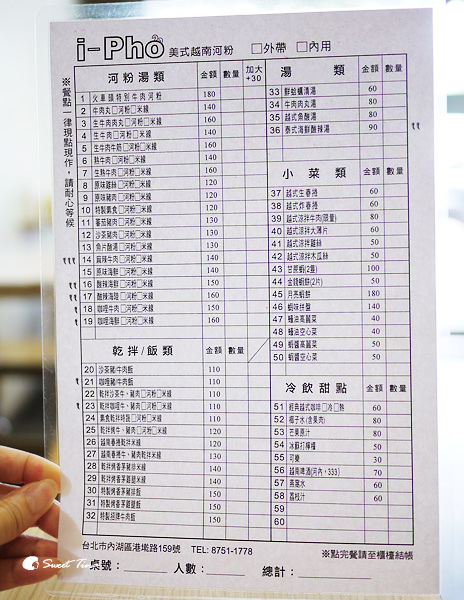 i-Pho 美式越南河粉 □外帶 □內用
※餐點一律現點現作，請耐心等候
河粉湯類 金額 數量 加大+30
1 火車頭特別牛肉河粉 180
2 牛肉丸□河粉□米線 140
3 生牛肉肉丸□河粉□米線 160
4 生牛肉□河粉□米線 140
5 生牛肉牛筋□河粉□米線 160
6 熟牛肉□河粉□米線 140
7 生熟牛肉□河粉□米線 160
8 原味雞絲□河粉□米線 120
9 原味豬肉□河粉□米線 120
10 特製素食□河粉□米線 120
11 蕃茄豬肉□河粉□米線 130
12 沙茶豬肉□河粉□米線 130
13 魚片酸湯□河粉□米線 130
14 麻辣牛肉□河粉□米線 140
15 原味海鮮□河粉□米線 140
16 酸辣海鮮□河粉□米線 150
17 酸辣海陸□河粉□米線 160
18 咖哩牛肉□河粉□米線 140
19 咖哩海鮮□河粉□米線 160
乾拌/飯類 金額 數量
20 沙茶豬/牛肉飯 110
21 咖哩豬/牛肉飯 110
22 乾拌沙茶牛、豬肉□河粉□米線 110
23 乾拌咖哩牛、豬肉□河粉□米線 110
24 素食乾拌時蔬□河粉□米線 110
25 乾拌烤牛、豬肉□河粉□米線 120
26 越南春捲乾拌米線 120
27 越南春捲牛、豬肉乾拌米線 130
28 乾拌烤香茅豬排米線 140
29 乾拌烤香茅雞腿米線 140
30 特製烤香茅豬排飯 150
31 特製烤香茅雞腿飯 150
32 特製招牌牛肉飯 150
湯類 金額 數量
33 鮮蛤蠣清湯 60
34 牛肉肉丸湯 80
35 越式魚酸湯 80
36 泰式海鮮酸辣湯 90
小菜類 金額 數量
37 越式生春捲 60
38 越式炸春捲 60
39 越式涼拌牛肉(限量) 80
40 越式涼拌大薄片 60
41 越式涼拌雞絲 50
42 越式涼拌木瓜絲 50
43 甘蔗蝦(2隻) 100
44 金錢蝦餅(2片) 50
45 月亮蝦餅 180
46 蝦味拼盤 140
47 蠔油高麗菜 40
48 蠔油空心菜 40
49 蝦醬高麗菜 50
50 蝦醬空心菜 50
冷飲甜點 金額 數量
51 經典越式咖啡□冷□熱 60
52 椰子水(含果肉) 80
53 芒果原汁 80
54 冰鎮檸檬 50
55 可樂 30
56 越南啤酒(河內,333) 70
57 燕窩水 60
58 荔枝汁 60
59
60
台北市內湖區港墘路159號 TEL: 8751-1778
※點完餐請至櫃檯結帳
桌號： 人數： 總計：
Sweet Tin